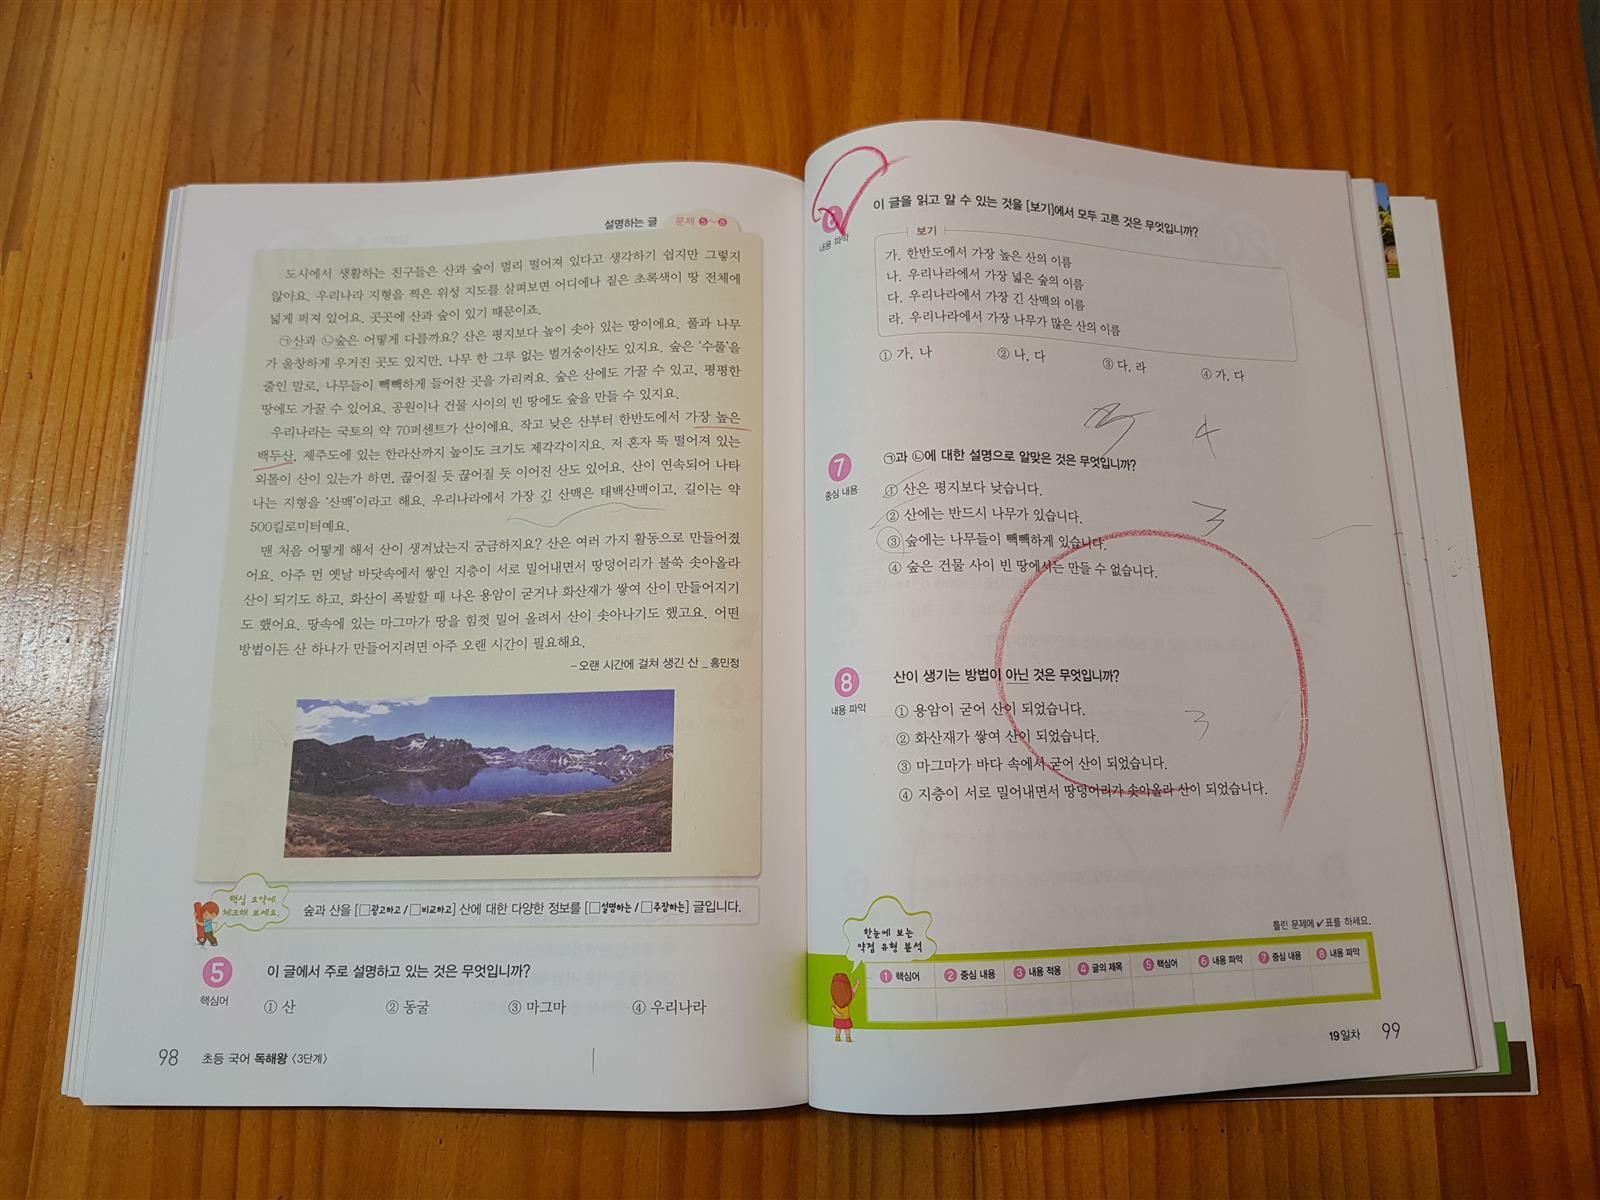 설명하는 글 문제 5~8
도시에서 생활하는 친구들은 산과 숲이 멀리 떨어져 있다고 생각하기 쉽지만 그렇지
않아요. 우리나라 지형을 찍은 위성 지도를 살펴보면 어디에나 짙은 초록색이 땅 전체에
넓게 퍼져 있어요. 곳곳에 산과 숲이 있기 때문이죠.
㉠산과 ㉡숲은 어떻게 다를까요? 산은 평지보다 높이 솟아 있는 땅이에요. 풀과 나무
가 울창하게 우거진 곳도 있지만, 나무 한 그루 없는 벌거숭이산도 있지요. 숲은 '수풀'을
줄인 말로, 나무들이 빽빽하게 들어찬 곳을 가리켜요. 숲은 산에도 가꿀 수 있고, 평평한
땅에도 가꿀 수 있어요. 공원이나 건물 사이의 빈 땅에도 숲을 만들 수 있지요.
우리나라는 국토의 약 70퍼센트가 산이에요. 작고 낮은 산부터 한반도에서 가장 높은
백두산, 제주도에 있는 한라산까지 높이도 크기도 제각각이지요. 저 혼자 뚝 떨어져 있는
외톨이 산이 있는가 하면, 끊어질 듯 끊어질 듯 이어진 산도 있어요. 산이 연속되어 나타
나는 지형을 '산맥'이라고 해요. 우리나라에서 가장 긴 산맥은 태백산맥이고, 길이는 약
500킬로미터예요.
맨 처음 어떻게 해서 산이 생겨났는지 궁금하지요? 산은 여러 가지 활동으로 만들어졌
어요. 아주 먼 옛날 바닷속에서 쌓인 지층이 서로 밀어내면서 땅덩어리가 불쑥 솟아올라
산이 되기도 하고, 화산이 폭발할 때 나온 용암이 굳거나 화산재가 쌓여 산이 만들어지기
도 했어요. 땅속에 있는 마그마가 땅을 힘껏 밀어 올려서 산이 솟아나기도 했고요. 어떤
방법이든 산 하나가 만들어지려면 아주 오랜 시간이 필요해요.
–오랜 시간에 걸쳐 생긴 산 _ 홍민정
핵심 요약에
체크해 보세요.
숲과 산을 [□광고하고 / □비교하고] 산에 대한 다양한 정보를 [□설명하는 / □주장하는] 글입니다.
5 이 글에서 주로 설명하고 있는 것은 무엇입니까?
핵심어
① 산 ② 동굴 ③ 마그마 ④ 우리나라
98 초등 국어 독해왕 〈3단계〉
6 이 글을 읽고 알 수 있는 것을 [보기]에서 모두 고른 것은 무엇입니까?
내용 파악
보기
가. 한반도에서 가장 높은 산의 이름
나. 우리나라에서 가장 넓은 숲의 이름
다. 우리나라에서 가장 긴 산맥의 이름
라. 우리나라에서 가장 나무가 많은 산의 이름
① 가, 나 ② 나, 다 ③ 다, 라 ④ 가, 다
4
7 ㉠과 ㉡에 대한 설명으로 알맞은 것은 무엇입니까?
중심 내용
① 산은 평지보다 낮습니다.
② 산에는 반드시 나무가 있습니다.
3
③ 숲에는 나무들이 빽빽하게 있습니다.
④ 숲은 건물 사이 빈 땅에서는 만들 수 없습니다.
8 산이 생기는 방법이 아닌 것은 무엇입니까?
내용 파악
① 용암이 굳어 산이 되었습니다.
3
② 화산재가 쌓여 산이 되었습니다.
③ 마그마가 바다 속에서 굳어 산이 되었습니다.
④ 지층이 서로 밀어내면서 땅덩어리가 솟아올라 산이 되었습니다.
한눈에 보는
약점 유형 분석
틀린 문제에 ✔ 표를 하세요.
1 핵심어 2 중심 내용 3 내용 적용 4 글의 제목 5 핵심어 6 내용 파악 7 중심 내용 8 내용 파악
19일차 99